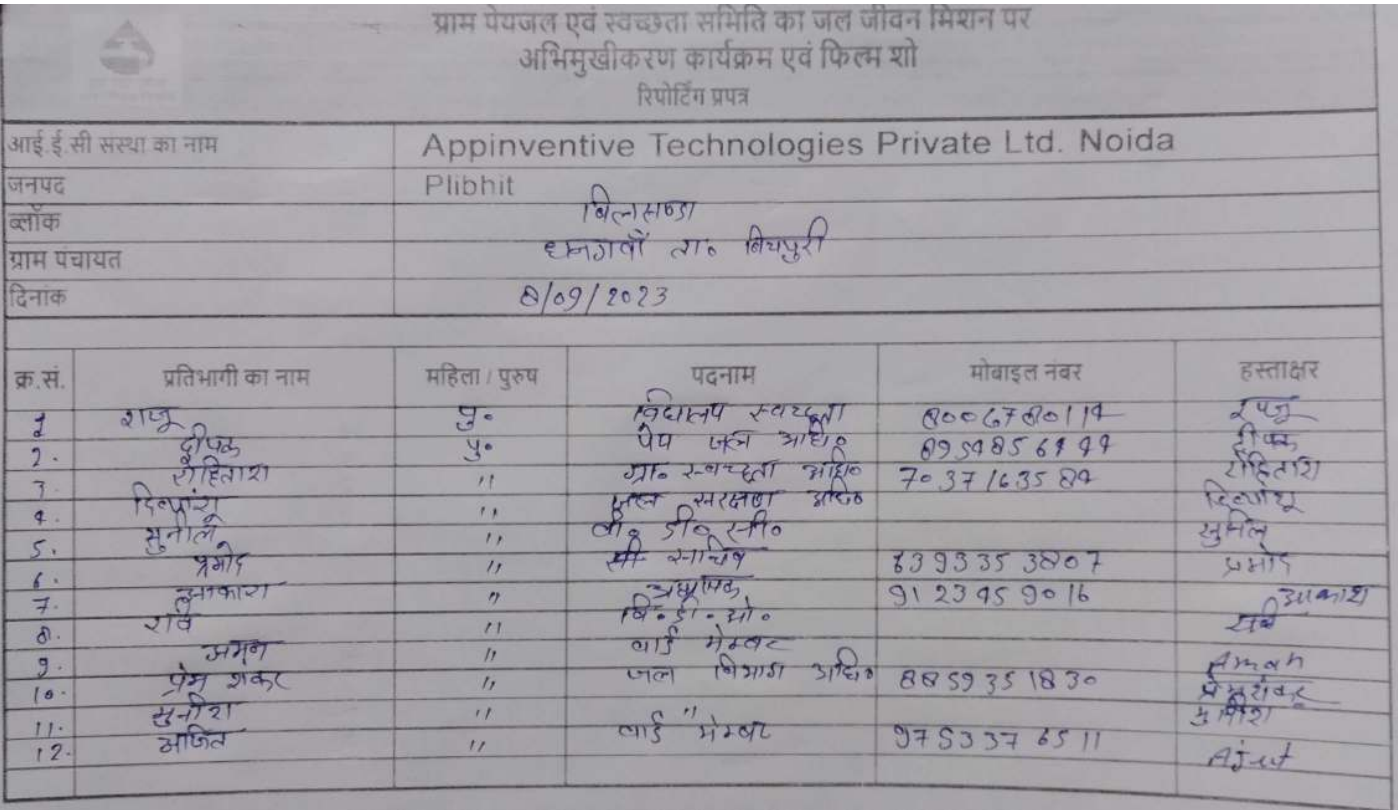 ग्राम पेयजल एवं स्वच्छता समिति का जल जीवन मिशन पर
अभिमुखीकरण कार्यक्रम एवं फिल्म शो
रिपोर्टिंग प्रपत्र
आई.ई.सी संस्था का नाम Appinventive Technologies Private Ltd. Noida
जनपद Plibhit
ब्लॉक बिलसण्डा
ग्राम पंचायत धनगवाँ ता० बिचपुरी
दिनांक 8/09/2023
क्र.सं. प्रतिभागी का नाम महिला / पुरुष पदनाम मोबाइल नंबर हस्ताक्षर
1 राजू पु० विद्यालय स्वच्छता राजू
2. दीपक पु० पेय जल अधि० दीपक
3. रोहिताश " ग्रा० स्वच्छता अधि० रोहिताश
4. दिव्यांशू " जल संरक्षण अधि० दिव्यांशू
5. सुनील " वी० डी० सी० सुनिल
6. प्रमोद " सचिव 6393353807 प्रमोद
7. आकाश " अध्यापक 9123459016 आकाश
8. रवि " बि. डी. ओ. रवि
9. अमन " वार्ड मेम्बर Aman
10. प्रेम शंकर " जल विभाग अधि० 8859351830 प्रेमशंकर
11. मुनीश " " मुनीश
12. अजित " वार्ड मेम्बर 9753376511 Ajeet